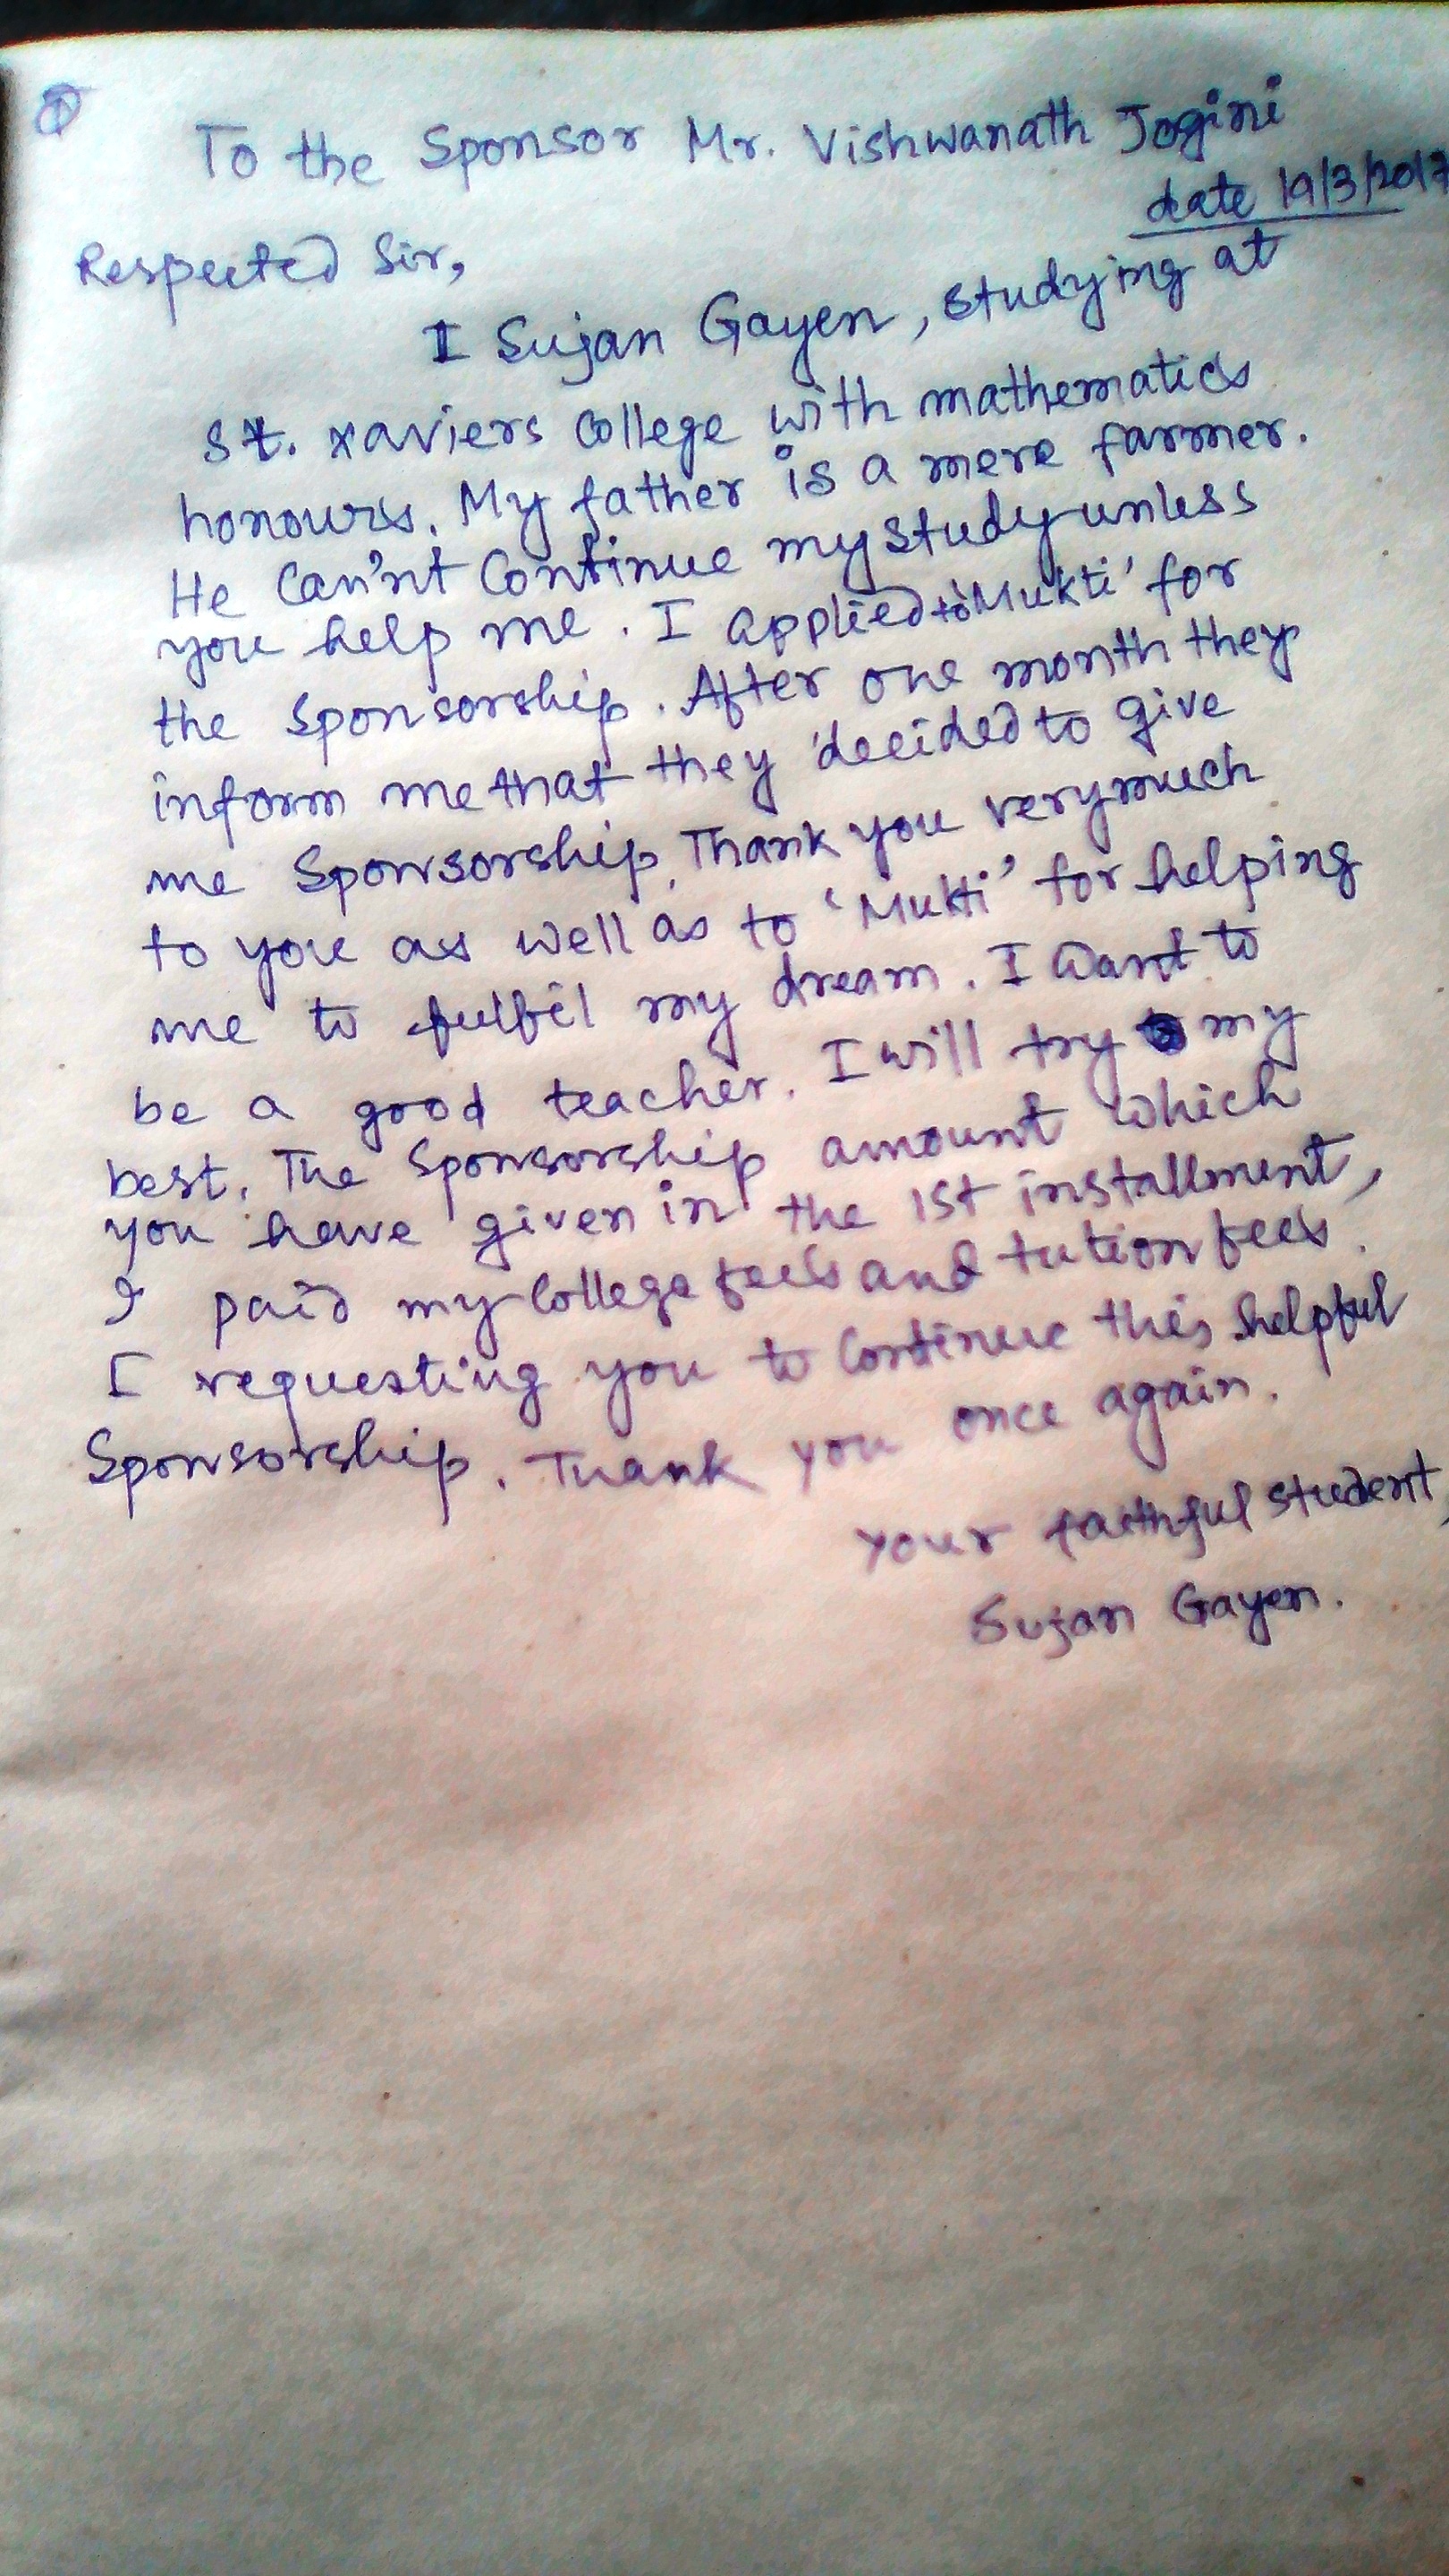 ①
To the Sponsor Mr. Vishwanath Jogini
date 19/3/2017
Respected Sir,
I Sujan Gayen, studying at
St. xaviers college with mathematics
honours. My father is a mere farmer.
He Can'nt Continue my study unless
you help me. I applied to 'Mukti' for
the Sponsorship. After one month they
inform me that they decided to give
me Sponsorship. Thank you very much
to you as well as to 'Mukti' for helping
me to fulfil my dream. I want to
be a good teacher. I will try my
best. The Sponsorship amount which
you have given in the 1st installment,
I paid my College fees and tution fees.
I requesting you to Continue this helpful
Sponsorship. Thank you once again.
Your faithful student,
Sujan Gayen.